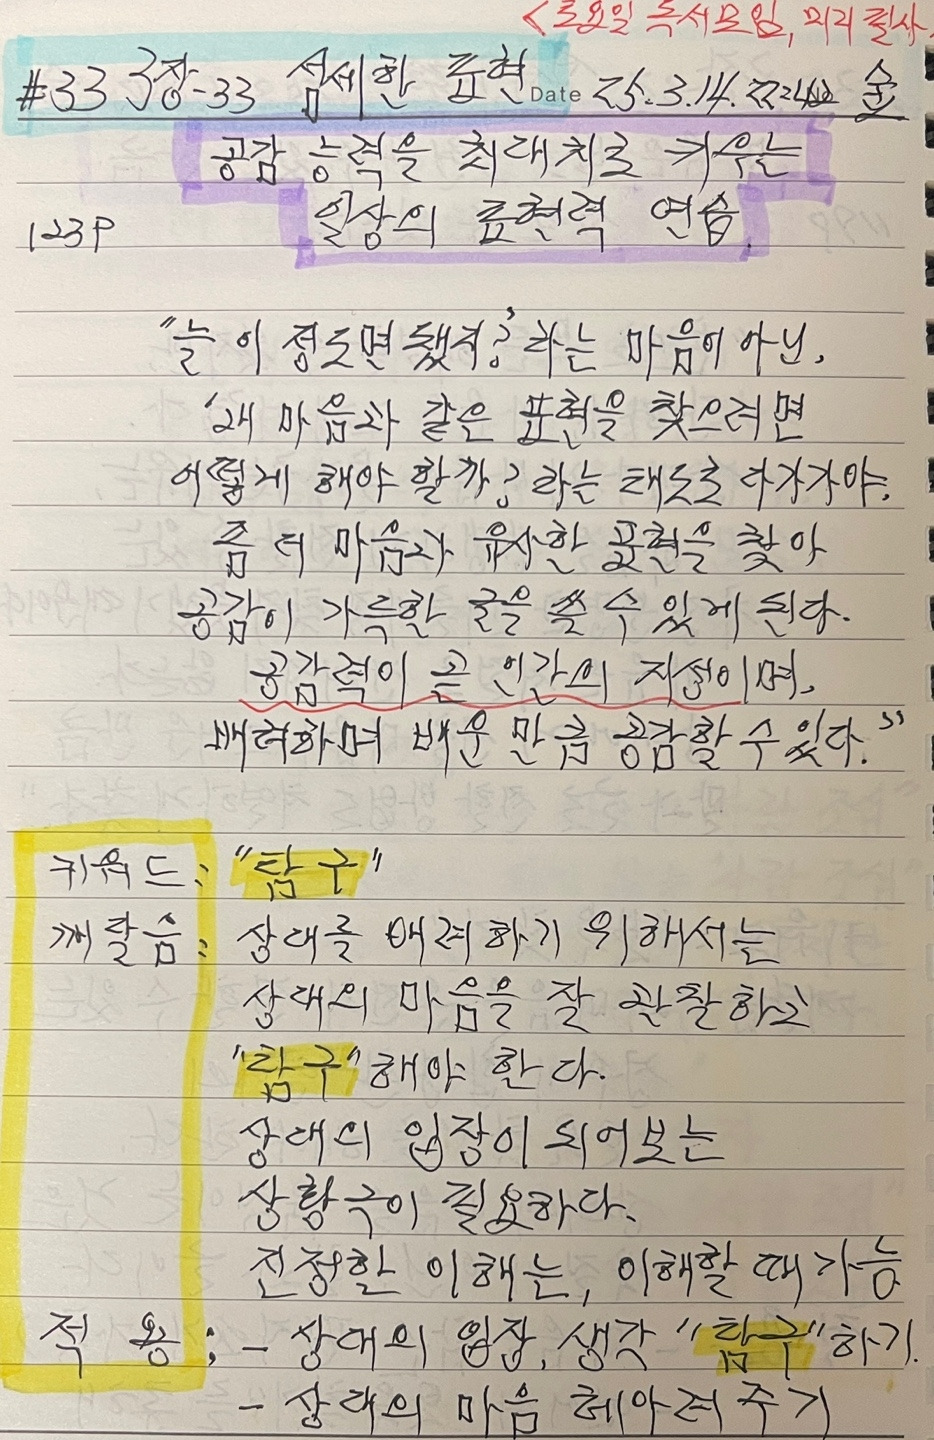 <토요일 독서모임, 미리 필사
#33 3장-33 섬세한 표현 Date 25.3.14. 22:24 술
공감 능력을 최대치로 키우는
123P 일상의 표현력 연습.
"늘 이 정도면 됐지?'라는 마음이 아닌,
'내 마음과 같은 표현을 찾으려면
어떻게 해야 할까?'라는 태도로 다가가야,
좀 더 마음과 유사한 표현을 찾아
공감이 가득한 글을 쓸 수 있게 된다.
공감력이 곧 인간의 지성이며,
배려하며 배운 만큼 공감할 수 있다."
키워드: "탐구"
깨달음: 상대를 배려하기 위해서는
상대의 마음을 잘 관찰하고
"탐구"해야 한다.
상대의 입장이 되어보는
상황극이 필요하다.
진정한 이해는, 이해할 때 가능
적용: - 상대의 입장, 생각 "탐구"하기.
- 상대의 마음 헤아려 주기